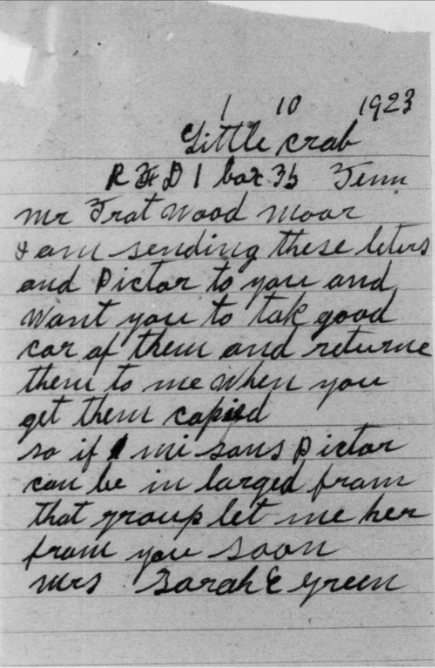 1 10 1923
Little crab
R F D 1 box 35 Tenn
mr Trat Wood Moor
I am sending these leters
and Pictor to you and
Want you to tak good
car of them and returne
them to me When you
get them copied
so if mi sons pictor
can be in larged from
that group let me her
from you soon
mrs Sarah E green